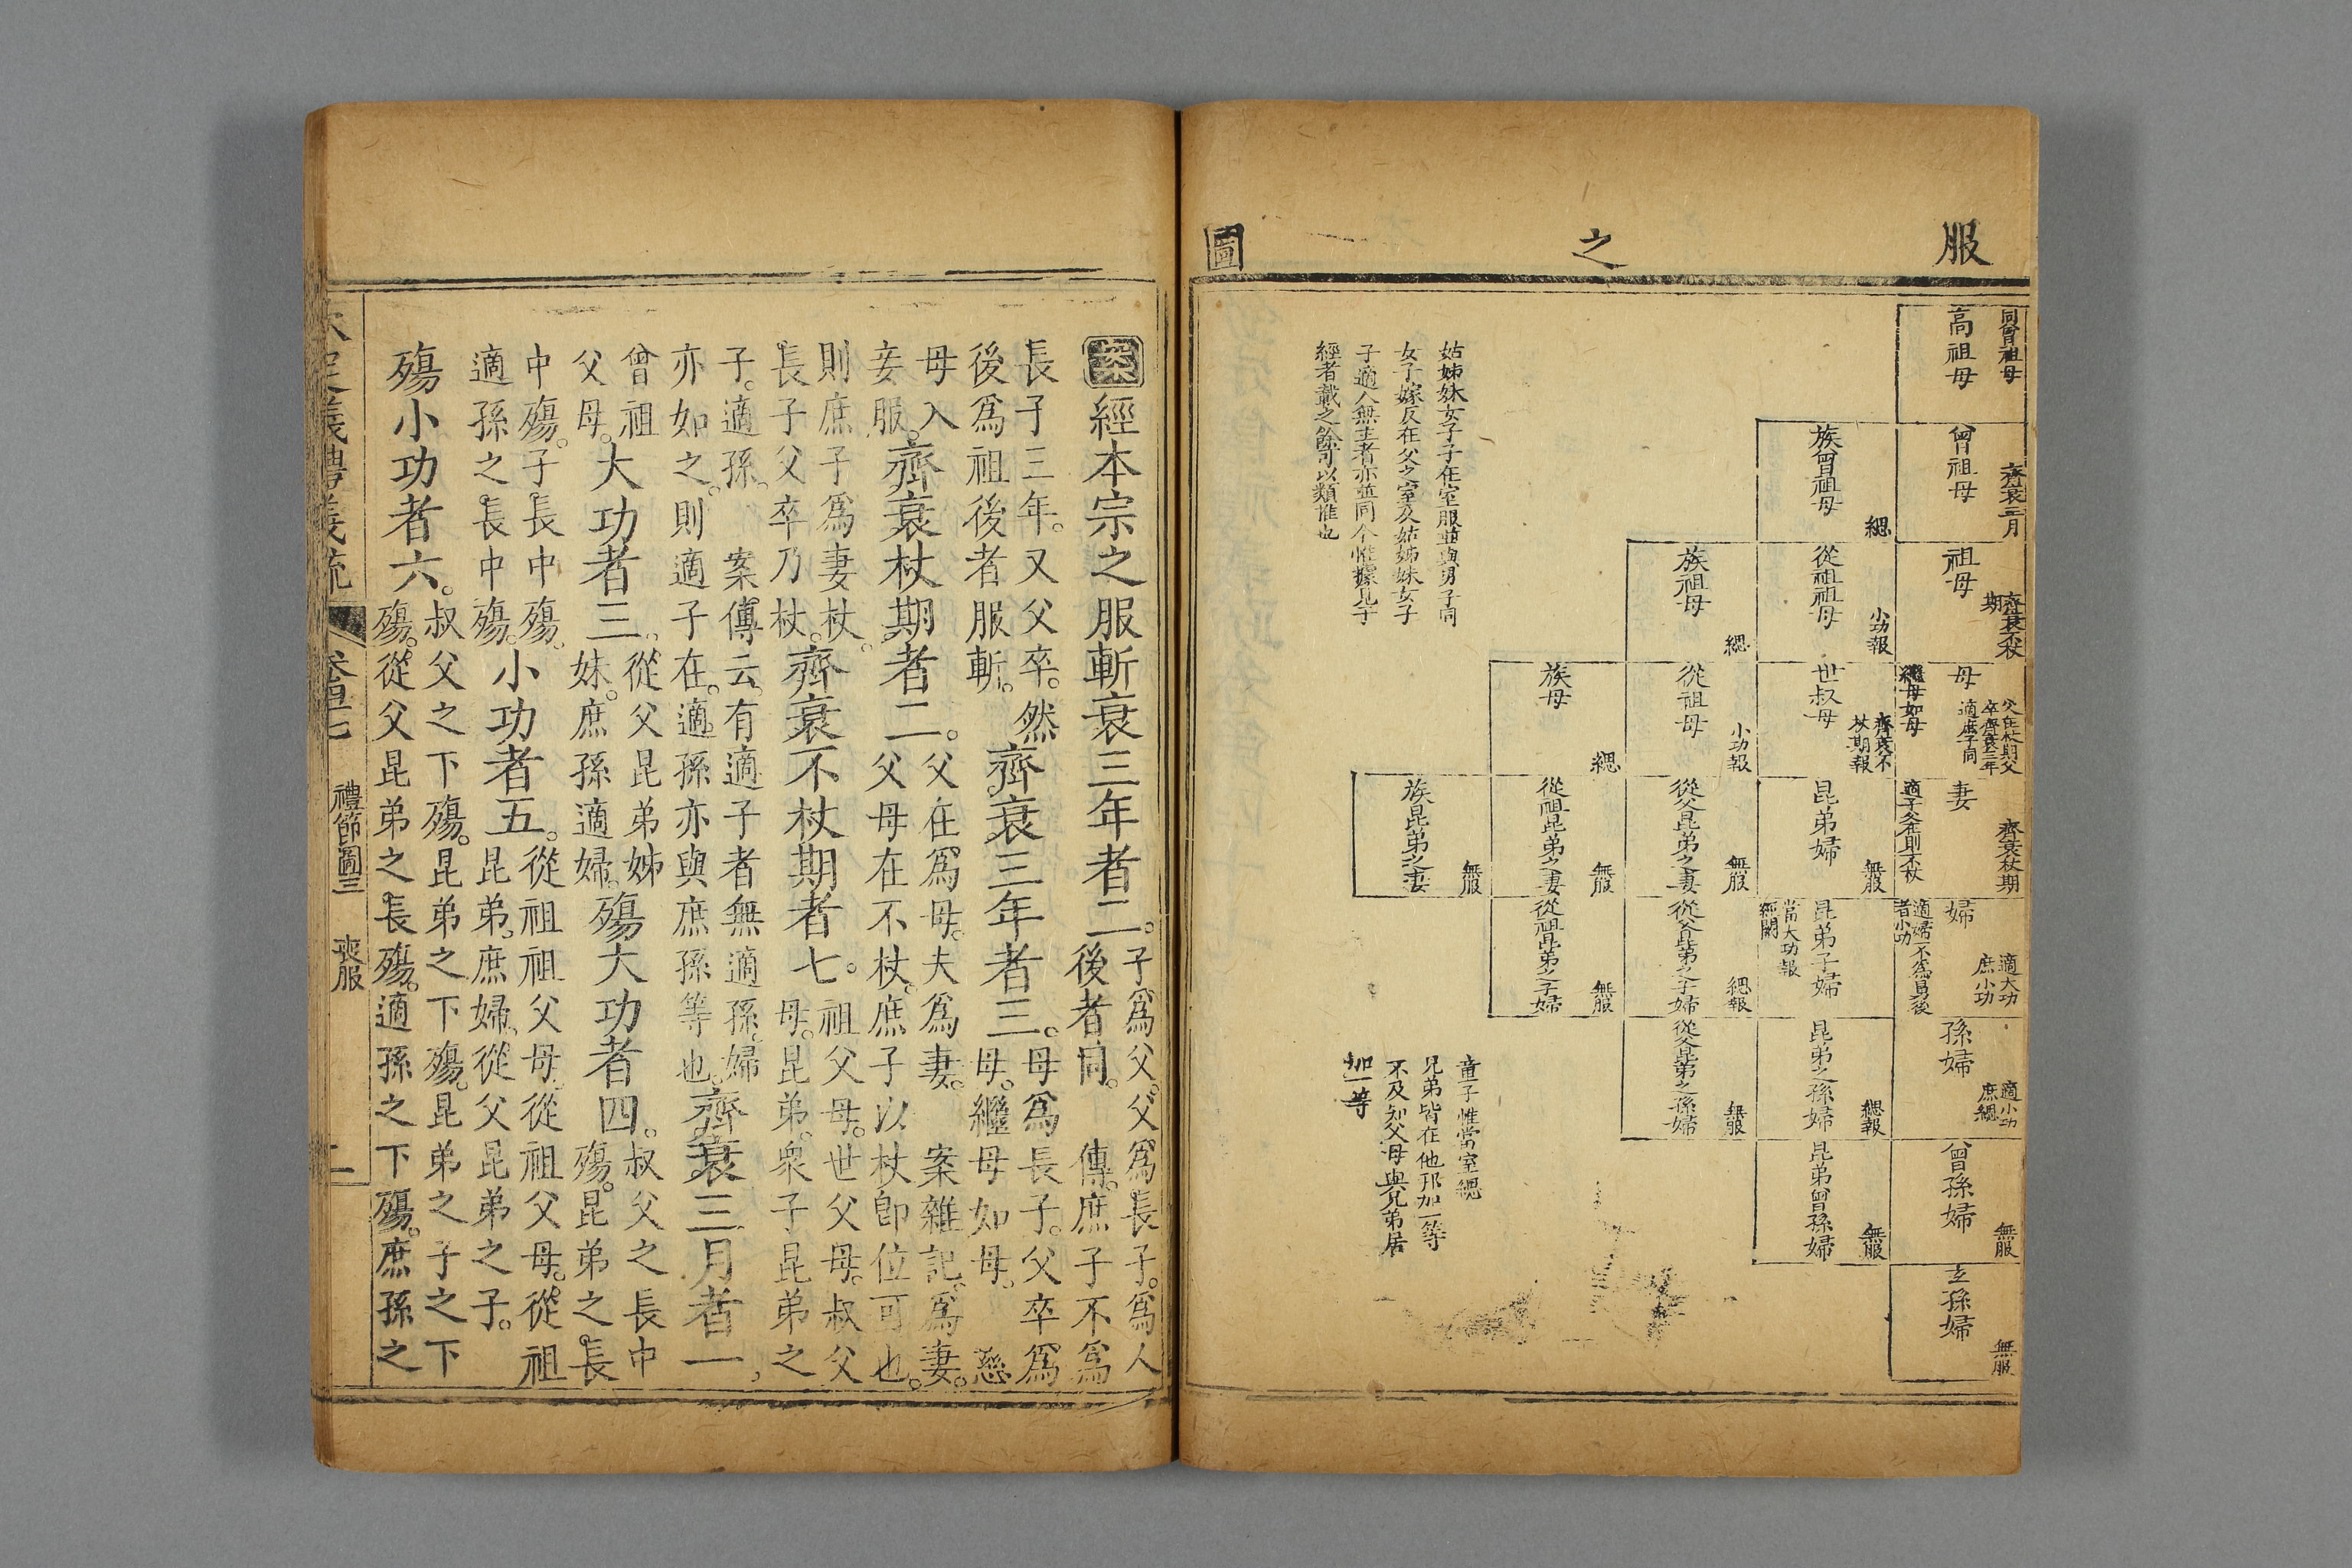 服
之
圖
同曾祖母
高祖母
齊衰三月
曾祖母
齊衰不杖
期
祖母
父在杖期父
卒齊衰三年
適庶子同
母
繼母如母
齊衰杖期
妻
適子父在則不杖
適大功
庶小功
婦
適婦不為舅後
者小功
適小功
庶緦
孫婦
無服
曾孫婦
無服
玄孫婦
緦
族曾祖母
小功報
從祖祖母
齊衰不
杖期報
世叔母
無服
昆弟婦
昆弟子婦
當大功報
經闕
緦報
昆弟之孫婦
無服
昆弟曾孫婦
緦
族祖母
小功報
從祖母
無服
從父昆弟之妻
緦報
從父昆弟之子婦
無服
從父昆弟之孫婦
緦
族母
無服
從祖昆弟之妻
無服
從祖昆弟之子婦
無服
族昆弟之妻
姑姊妹女子子在室服並與男子同
女子嫁反在父之室及姑姊妹女子
子適人無主者亦並同今惟據見于
經者載之餘可以類推也
童子惟當室緦
兄弟皆在他邦加一等
不及知父母與兄弟居
加一等
案經本宗之服斬衰三年者二。子爲父。父爲長子。爲人
後者同。傳。庶子不爲
長子三年。又父卒。然
後爲祖後者服斬。齊衰三年者三。母爲長子。父卒爲
母。繼母如母。慈
母入齊衰杖期者二。父在爲母。夫爲妻。案雜記。爲妻。
妾服。父母在不杖。庶子以杖卽位可也。
則庶子爲妻杖。
長子父卒乃杖。齊衰不杖期者七。祖父母。世父母。叔父
母。昆弟。衆子昆弟之
子。適孫。案傳云。有適子者無適孫。婦
亦如之。則適子在。適孫亦與庶孫等也。齊衰三月者一、
曾祖
父母。大功者三。從父昆弟姊
妹。庶孫適婦。殤大功者四。叔父之長中
殤。昆弟之長
中殤。子長中殤。
適孫之長中殤。小功者五。從祖祖父母。從祖父母。從祖
昆弟。庶婦。從父昆弟之子。
殤小功者六。叔父之下殤。昆弟之下殤。昆弟之子之下
殤。從父昆弟之長殤。適孫之下殤。庶孫之
欽定義禮義疏
卷四十七
禮節圖三
喪服
二